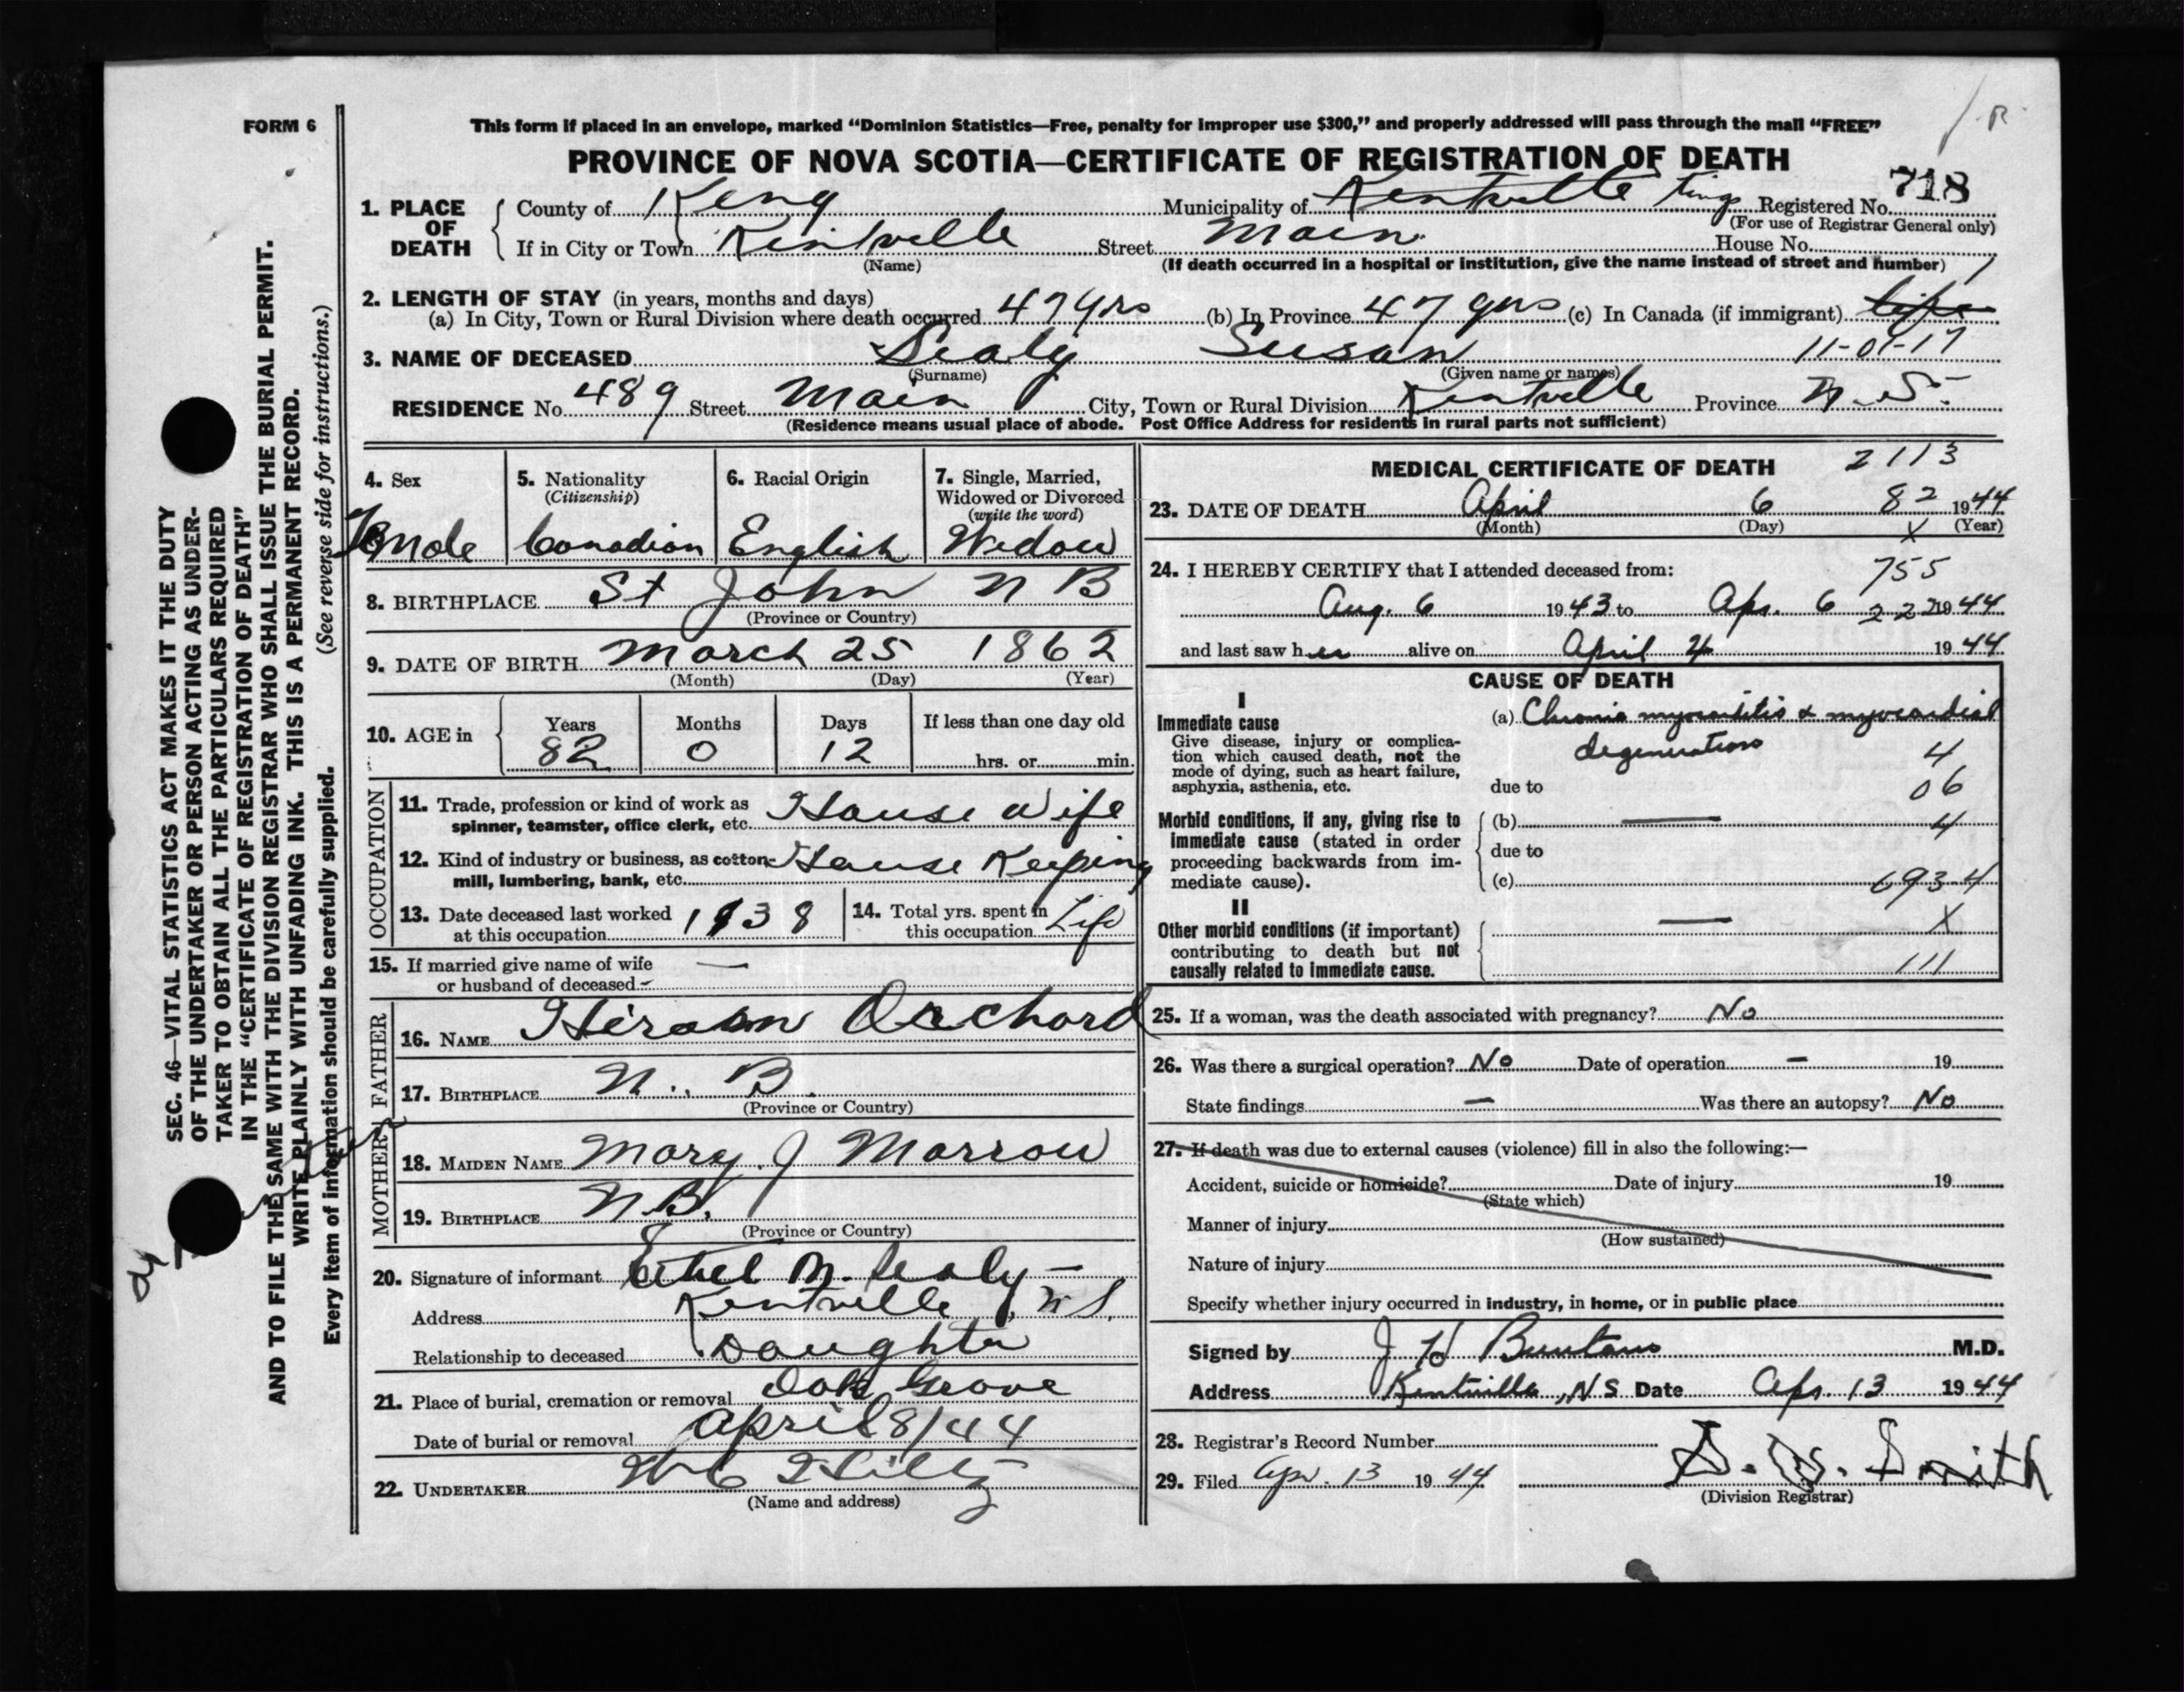 FORM 6
This form if placed in an envelope, marked “Dominion Statistics—Free, penalty for improper use $300,” and properly addressed will pass through the mail “FREE”
PROVINCE OF NOVA SCOTIA—CERTIFICATE OF REGISTRATION OF DEATH
718
1. PLACE OF DEATH
County of King Municipality of Kentville Kings Registered No.
(For use of Registrar General only)
If in City or Town Kentville Street Main House No.
(Name) (If death occurred in a hospital or institution, give the name instead of street and number)
2. LENGTH OF STAY (in years, months and days)
(a) In City, Town or Rural Division where death occurred 47 yrs (b) In Province 47 yrs (c) In Canada (if immigrant) life
3. NAME OF DECEASED Sealy Susan 11-01-17
(Surname) (Given name or names)
RESIDENCE No. 489 Street Main City, Town or Rural Division Kentville Province N. S.
(Residence means usual place of abode. Post Office Address for residents in rural parts not sufficient)
4. Sex 5. Nationality (Citizenship) 6. Racial Origin 7. Single, Married, Widowed or Divorced (write the word)
Female Canadian English Widow
8. BIRTHPLACE St John N B
(Province or Country)
9. DATE OF BIRTH March 25 1862
(Month) (Day) (Year)
10. AGE in Years Months Days If less than one day old
82 0 12 hrs. or min.
OCCUPATION
11. Trade, profession or kind of work as spinner, teamster, office clerk, etc. House Wife
12. Kind of industry or business, as cotton mill, lumbering, bank, etc. House Keeping
13. Date deceased last worked at this occupation 1938
14. Total yrs. spent in this occupation Life
15. If married give name of wife or husband of deceased —
FATHER
16. NAME Hiram Orchard
17. BIRTHPLACE N. B.
(Province or Country)
MOTHER
18. MAIDEN NAME Mary J Morrow
19. BIRTHPLACE N.B.
(Province or Country)
20. Signature of informant Ethel M. Sealy
Address Kentville, N S.
Relationship to deceased Daughter
21. Place of burial, cremation or removal Oak Grove
Date of burial or removal April 8/44
22. UNDERTAKER W C Hiltz
(Name and address)
MEDICAL CERTIFICATE OF DEATH 2113
23. DATE OF DEATH April 6 82 1944
(Month) (Day) X (Year)
24. I HEREBY CERTIFY that I attended deceased from: 755
Aug. 6 1943 to Apr. 6 222 1944
and last saw her alive on April 4 1944
CAUSE OF DEATH
I
Immediate cause
Give disease, injury or complication which caused death, not the mode of dying, such as heart failure, asphyxia, asthenia, etc.
(a) Chronic myocarditis & myocardial
degeneration 4
due to 06
Morbid conditions, if any, giving rise to immediate cause (stated in order proceeding backwards from immediate cause).
(b) — 4
due to
(c) 693-4
II
Other morbid conditions (if important) contributing to death but not causally related to immediate cause.
— X
111
25. If a woman, was the death associated with pregnancy? No
26. Was there a surgical operation? No Date of operation — 19
State findings — Was there an autopsy? No
27. If death was due to external causes (violence) fill in also the following:—
Accident, suicide or homicide? Date of injury 19
(State which)
Manner of injury
(How sustained)
Nature of injury
Specify whether injury occurred in industry, in home, or in public place
Signed by J H M.D.
Address Kentville, N S Date Apr. 13 1944
28. Registrar's Record Number
29. Filed Apr. 13 1944 Smith
(Division Registrar)
SEC. 46—VITAL STATISTICS ACT MAKES IT THE DUTY
OF THE UNDERTAKER OR PERSON ACTING AS UNDER-
TAKER TO OBTAIN ALL THE PARTICULARS REQUIRED
IN THE “CERTIFICATE OF REGISTRATION OF DEATH”
AND TO FILE THE SAME WITH THE DIVISION REGISTRAR WHO SHALL ISSUE THE BURIAL PERMIT.
WRITE PLAINLY WITH UNFADING INK. THIS IS A PERMANENT RECORD.
Every item of information should be carefully supplied. (See reverse side for instructions.)